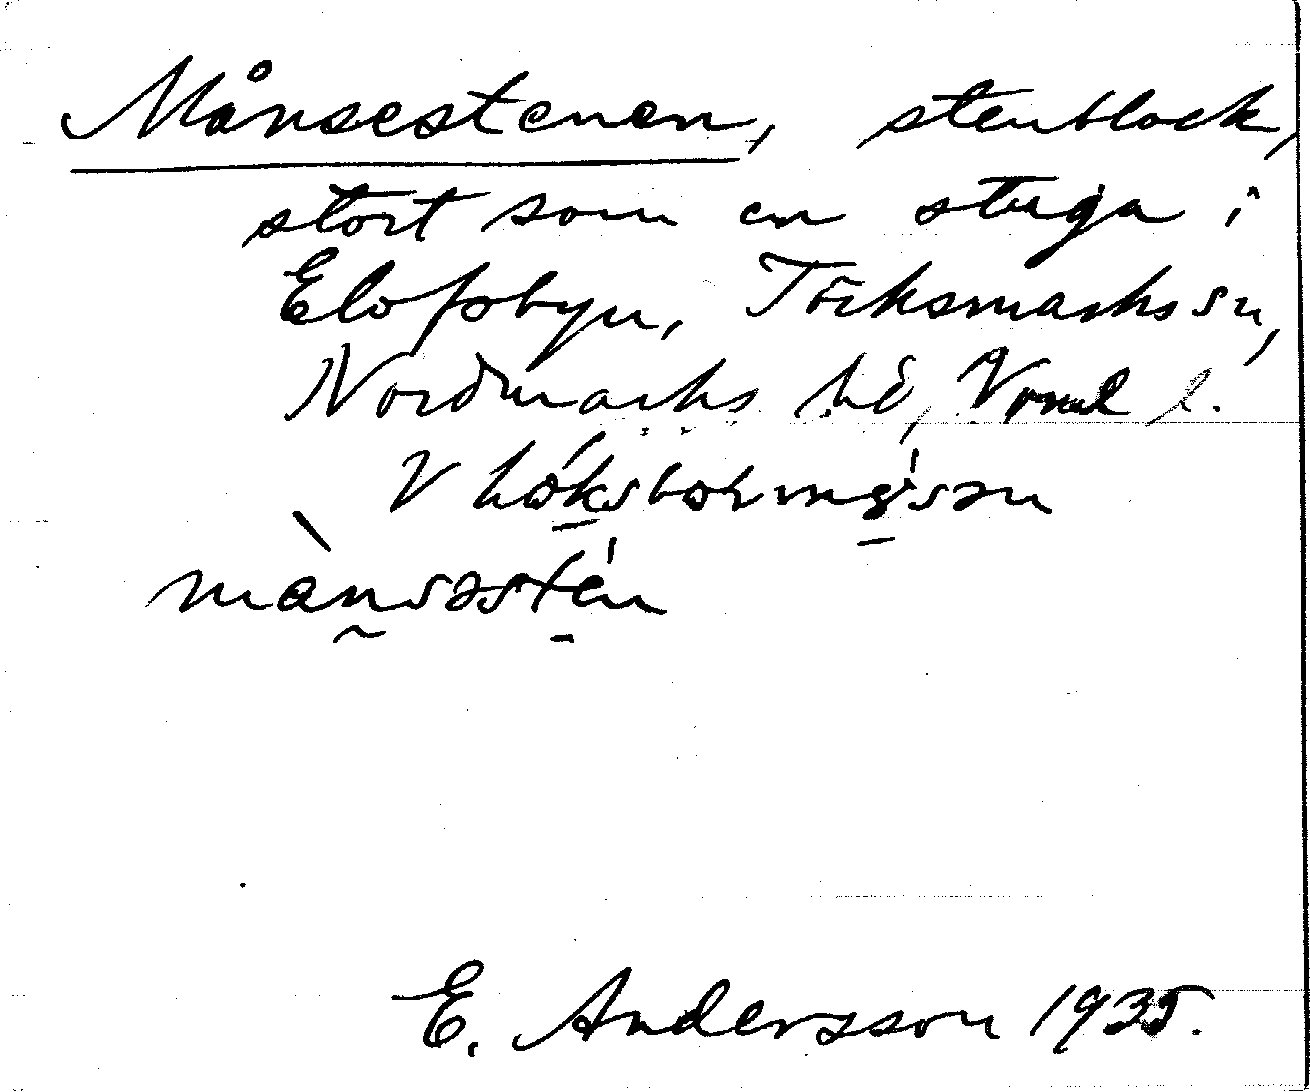 Månsestenen, stenblock,
stort som en stuga i
Elofsbyn, Töcksmarks sn,
Nordmarks hd, Vrml l.
V
mànsəstén
E. Andersson 1935.